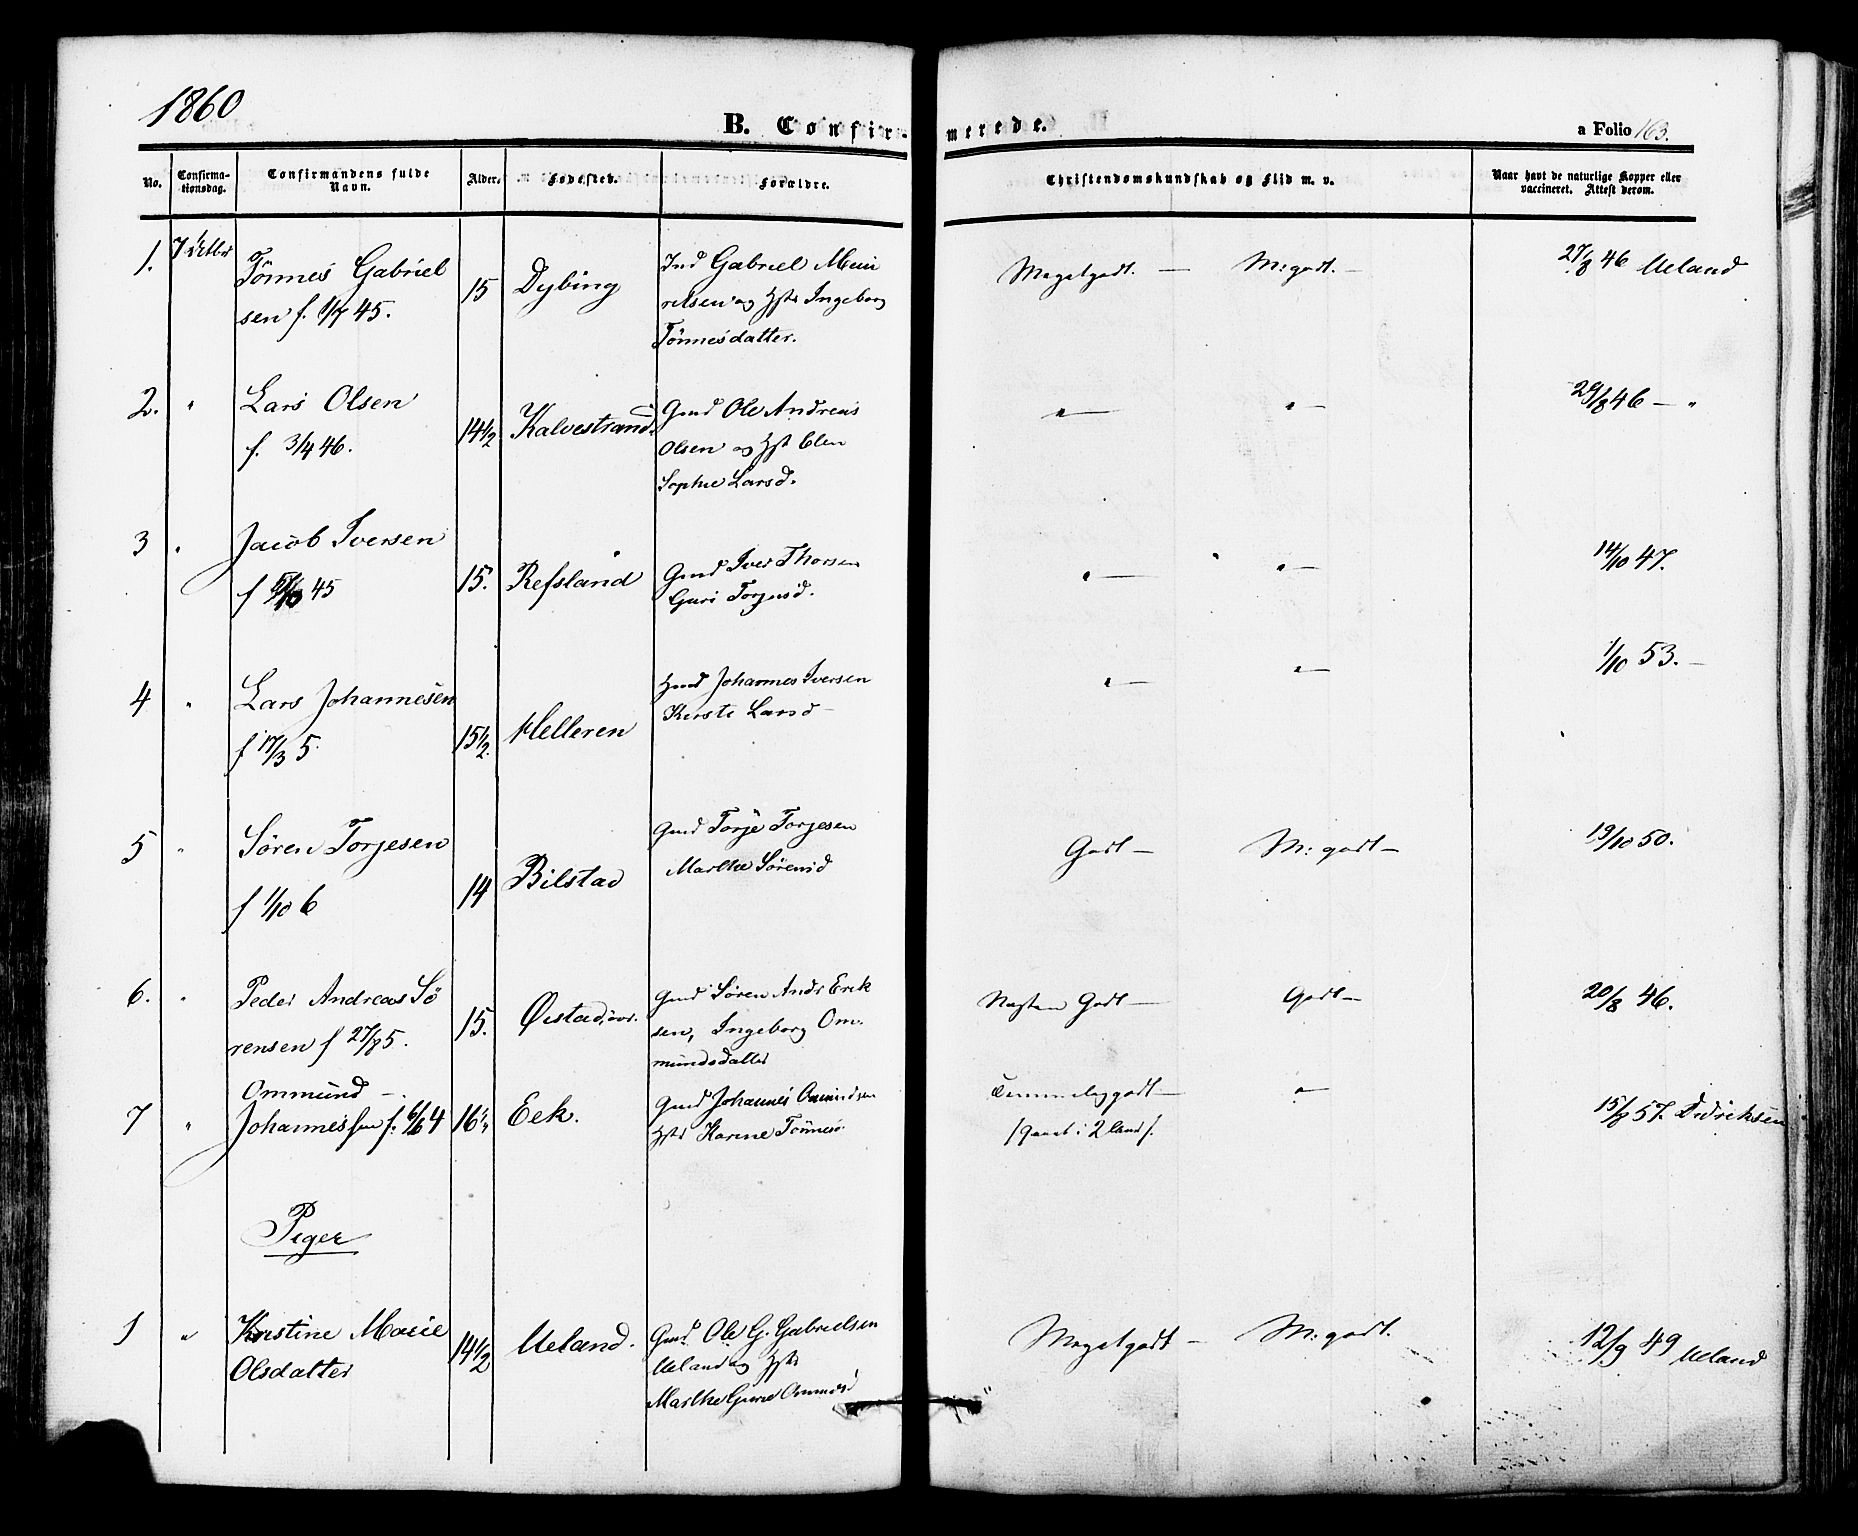 1860
B. Confir-
merede.
a Folio 163.
No.
Confirma-
tionsdag.
Confirmandens fulde
Navn.
Alder.
Fødested.
Forældre.
Christendomskundskab og Flid m. v.
Naar havt de naturlige Kopper eller
vaccineret. Attest derom.
1.
Tönnes Gabriel
sen f. 45.
15
Dybing
Gabriel
og Ingeborg
Tönnesdatter.
Megetgodt. — M: godt. —
27/8 46 Ueland
2. "
Lars Olsen
f. 3/4 46.
14 1/2
Kalvestrand
Gmd Ole Andreas
Olsen og Elen
Sophie Larsd.
" — " —
29/8 46 — "
3 "
Jacob Iversen
f 45
15.
Refsland
Gmd Iver Thorsen
Guri Torjusd.
" — " —
14/10 47.
4 "
Lars Johannesen
f 17/3 5.
15 1/2.
Helleren
Johannes Iversen
Kirste Larsd —
" — " —
1/10 53. —
5 "
Sören Torjesen
f 1/10 6
14
Bilstad
Gmd Torje Torjesen
Marthe Sörensd
Godt — M: godt —
19/10 50.
6. "
Peder Andreas Sö
rensen f 27/8 5.
15.
Øistad,
Gmd Sören Andr Erik
sen, Ingeborg Om.
mundsdatter
Næsten Godt — Godt —
20/8 46.
7 "
Ommund —
Johannessen f. 6/6 4
16
Eek.
Gmd Johannes
Karine Tönnes
Temmeliggodt — " —
57. Didriksen
Piger
1 "
Kristine Marie
Olsdatter
14 1/2
Ueland.
Gmd. Ole G. Gabrielsen
Ueland og
Marthe Gurie Ommunds
Megetgodt — M: godt.
12/9 49 Ueland